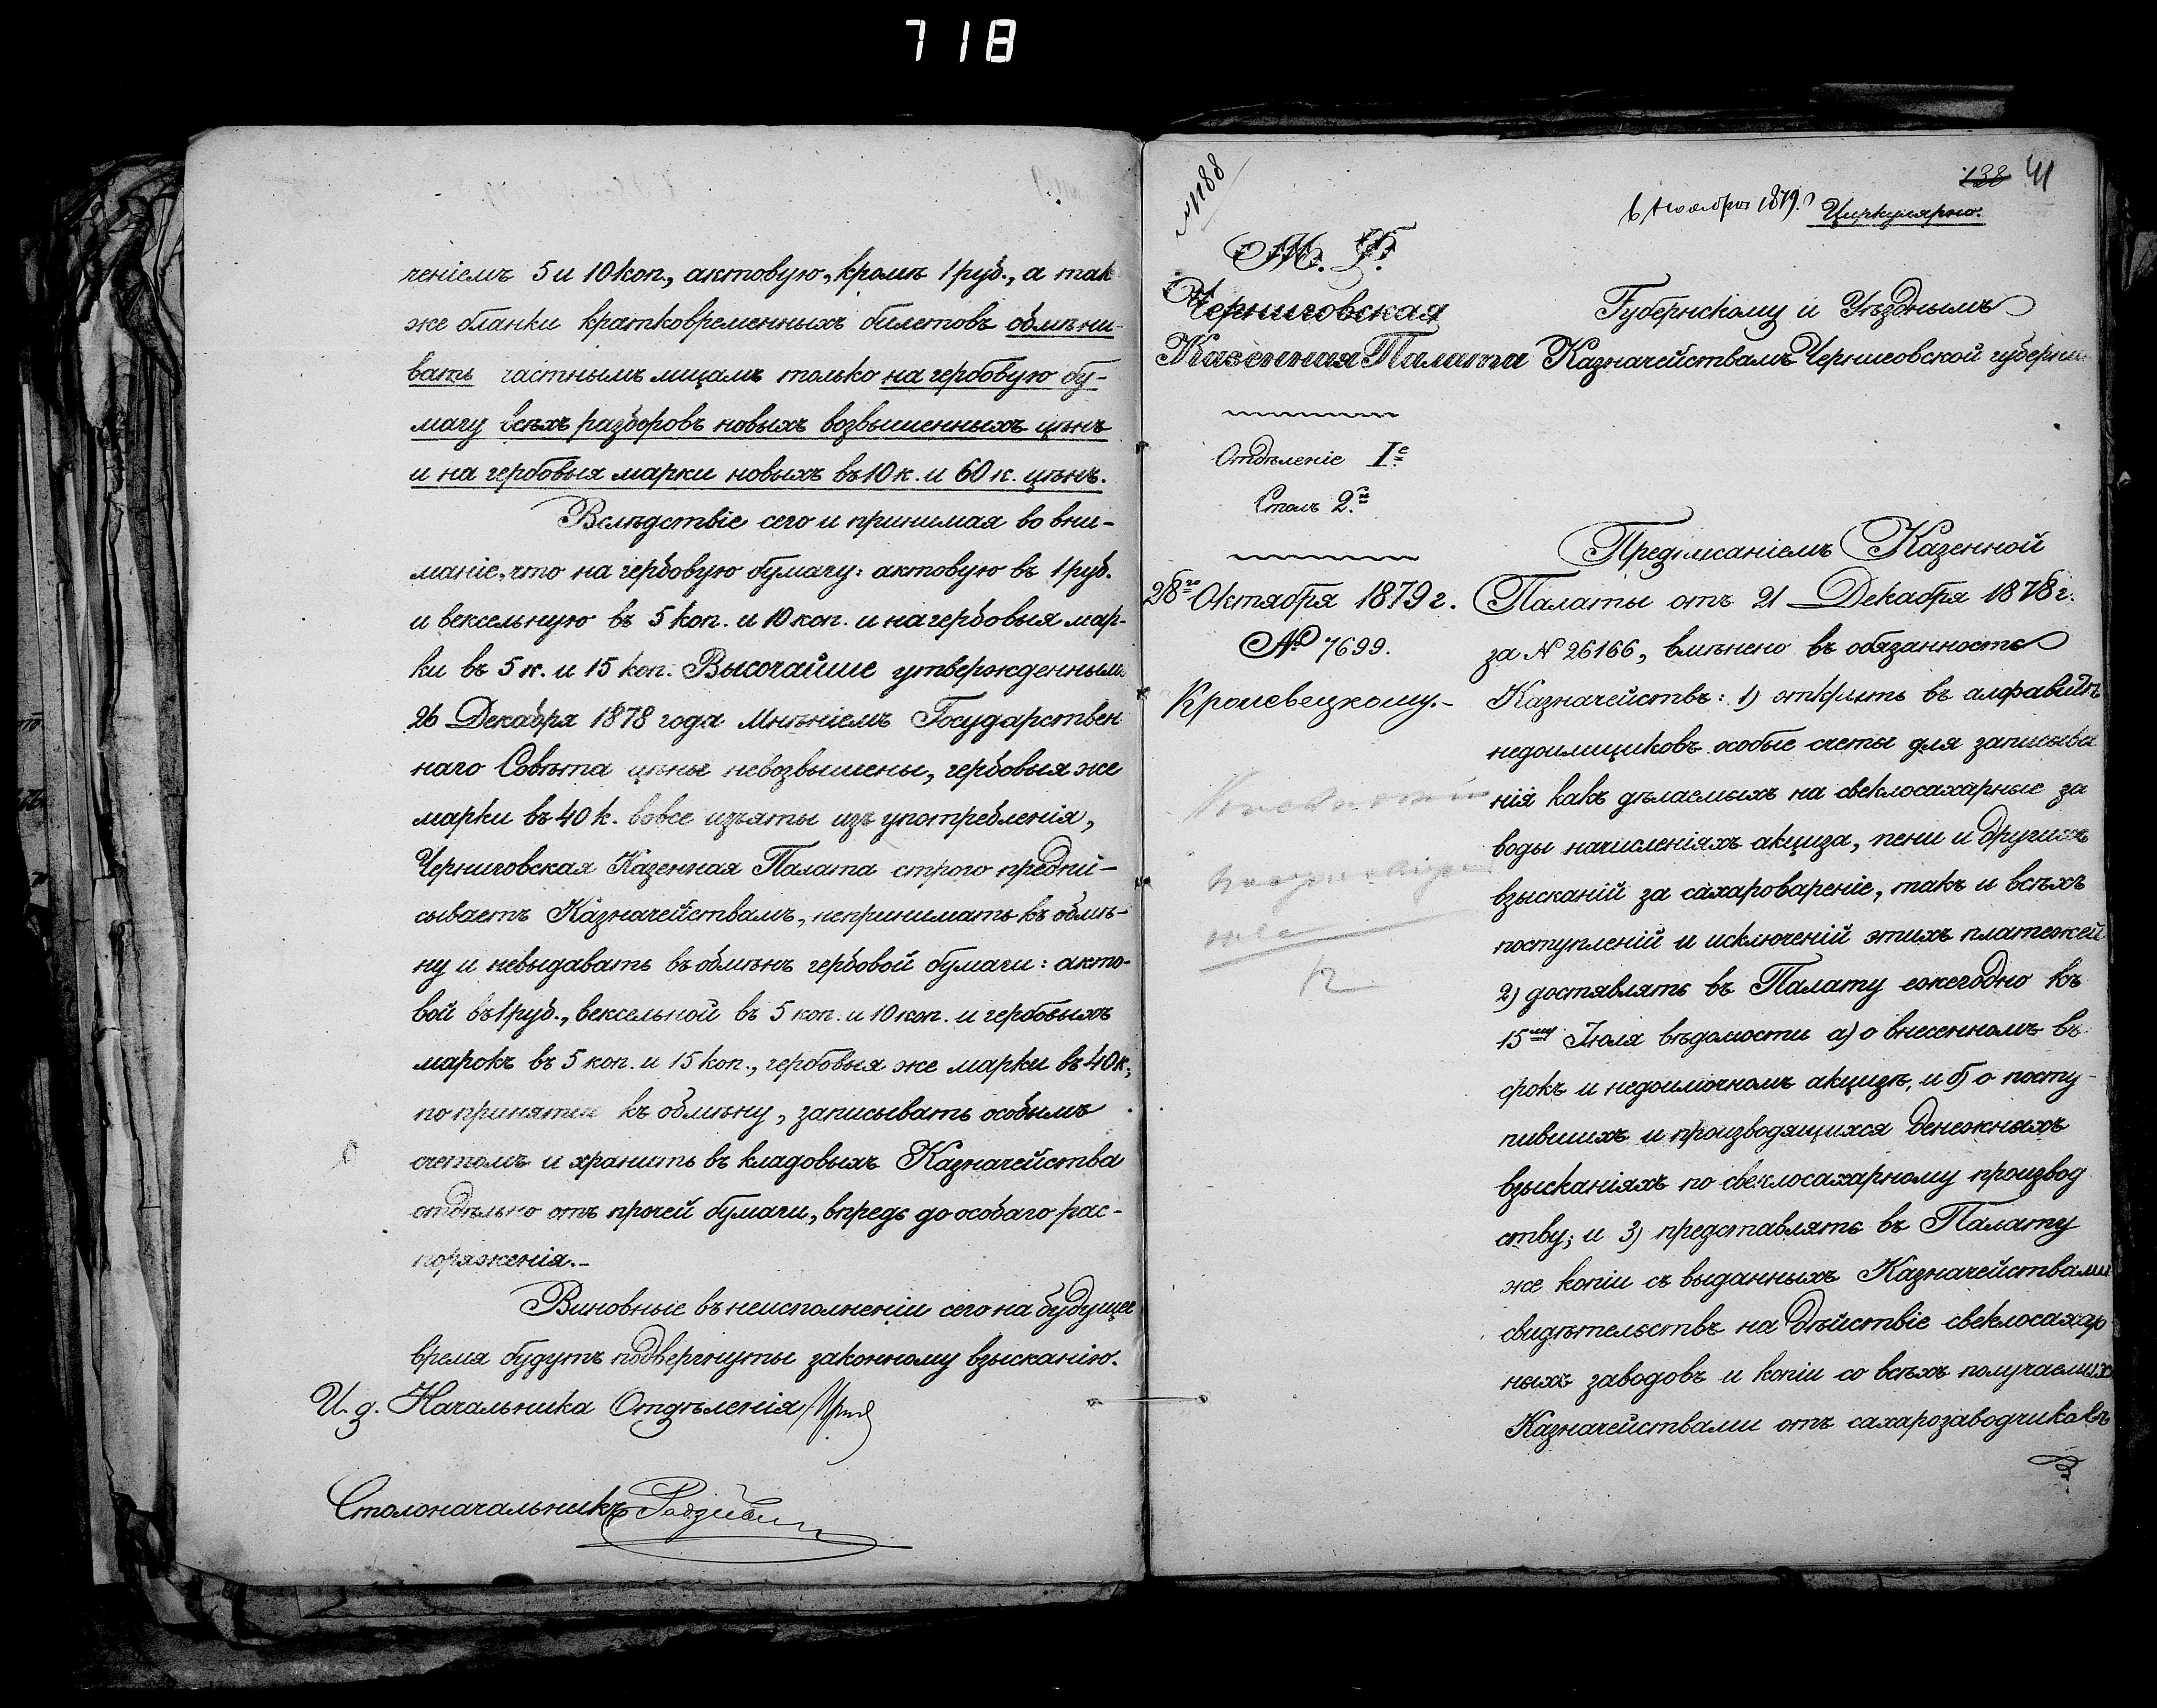 718
ченіемъ 5 и 10 коп., актовую, кромѣ 1 руб., а так
же бланки кратковременныхъ билетовъ обмѣни-
вать частнымъ лицамъ только на гербовую бу-
магу всѣхъ разборовъ новыхъ возвышенныхъ цѣнъ
и на гербовыя марки новыхъ въ 10 к. и 60 к. цѣнъ.
Вслѣдствіе сего и принимая во вни-
маніе, что на гербовую бумагу: актовую въ 1 руб.
и вексельную въ 5 коп. и 10 коп. и на гербовыя мар-
ки въ 5 к. и 15 коп. Высочайше утвержденнымъ
26 Декабря 1878 года Мнѣніемъ Государствен
наго Совѣта цѣны невозвышены, гербовыя же
марки въ 40 к. вовсе изъяты изъ употребленія,
Черниговская Казенная Палата строго предпи-
сываетъ Казначействамъ, непринимать къ обмѣ-
ну и невыдавать въ обмѣнъ гербовой бумаги: акто-
вой въ 1 руб., вексельной въ 5 коп. и 10 коп. и гербовыхъ
марокъ въ 5 коп. и 15 коп., гербовыя же марки въ 40 к.,
по принятіи къ обмѣну, записывать особымъ
счетомъ и хранить въ кладовыхъ Казначейства
отдѣльно отъ прочей бумаги, впредь до особаго рас-
поряженія.-
Виновные въ неисполненіи сего на будущее
время будутъ подвергнуты законному взысканію.
И. д. Начальника Отдѣленія
Столоначальникъ
138 41
6 Ноября 1879. Циркулярно.
М. Ф.
Черниговская
Казенная Палата
Отдѣленіе I е
Столъ 2.й
28го Октября 1879 г.
№ 7699.
Кролевецкому.-
Губернскому и Уѣзднымъ
Казначействамъ Черниговской губерніи
Предписаніемъ Казенной
Палаты отъ 21 Декабря 1878 г.
за № 26166, вмѣнено въ обязанность
Казначействъ: 1) открыть въ алфавитѣ
недоимщиковъ особые счеты для записыва
нія какъ дѣлаемыхъ на свеклосахарные за
воды начисленіяхъ акциза, пени и другихъ
взысканій за сахаровареніе, такъ и всѣхъ
поступленій и исключеній этихъ платежей
2) доставлять въ Палату ежегодно къ
15му Іюля вѣдомости а) о внесенномъ въ
срокъ и недоимочномъ акцизѣ, и б) о посту-
пившихъ и производящихся денежныхъ
взысканіяхъ по свеклосахарному производ
ству; и 3) представлять въ Палату
же копіи съ выданныхъ Казначействами
свидѣтельствъ на дѣйствіе свеклосахар
ныхъ заводовъ и копіи со всѣхъ получаемыхъ
Казначействами отъ сахарозаводчиковъ